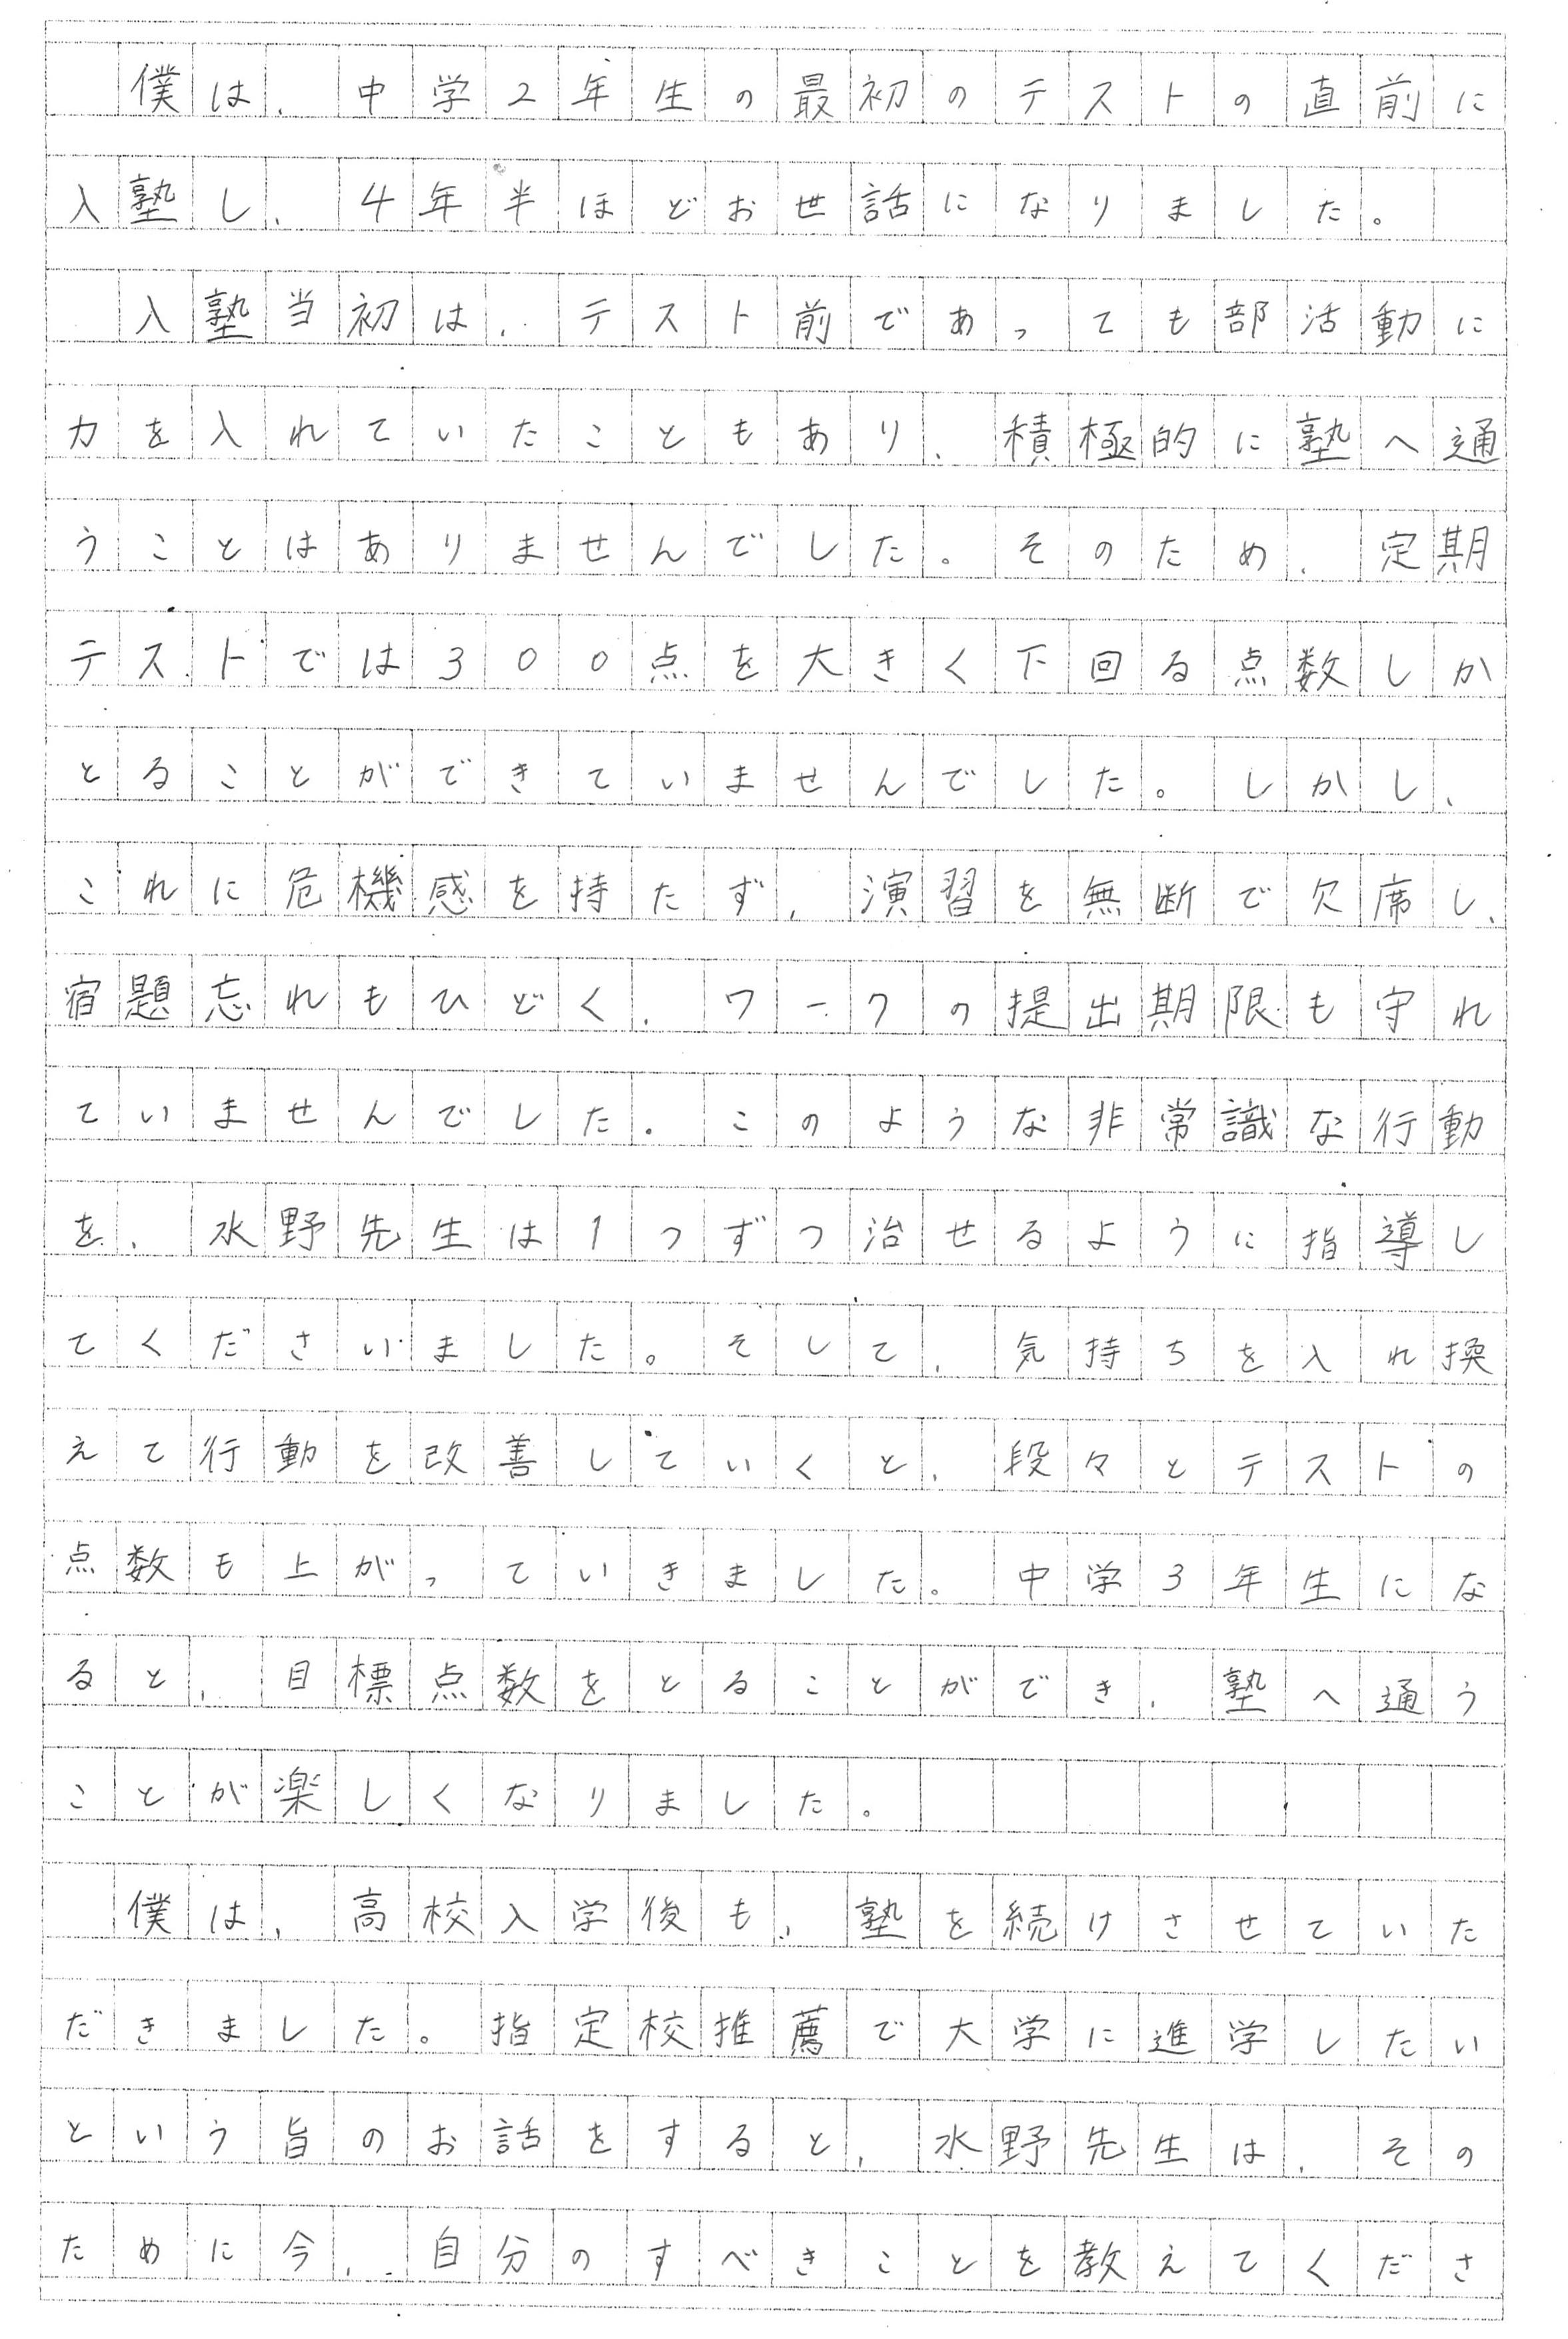 僕は、中学２年生の最初のテストの直前に
入塾し、４年半ほどお世話になりました。
　入塾当初は、テスト前であっても部活動に
力を入れていたこともあり、積極的に塾へ通
うことはありませんでした。そのため、定期
テストでは３００点を大きく下回る点数しか
とることができていませんでした。しかし、
これに危機感を持たず、演習を無断で欠席し、
宿題忘れもひどく、ワークの提出期限も守れ
ていませんでした。このような非常識な行動
を、水野先生は１つずつ治せるように指導し
てくださいました。そして、気持ちを入れ換
えて行動を改善していくと、段々とテストの
点数も上がっていきました。中学３年生にな
ると、目標点数をとることができ、塾へ通う
ことが楽しくなりました。
　僕は、高校入学後も、塾を続けさせていた
だきました。指定校推薦で大学に進学したい
という旨のお話をすると、水野先生は、その
ために今、自分のすべきことを教えてくださ